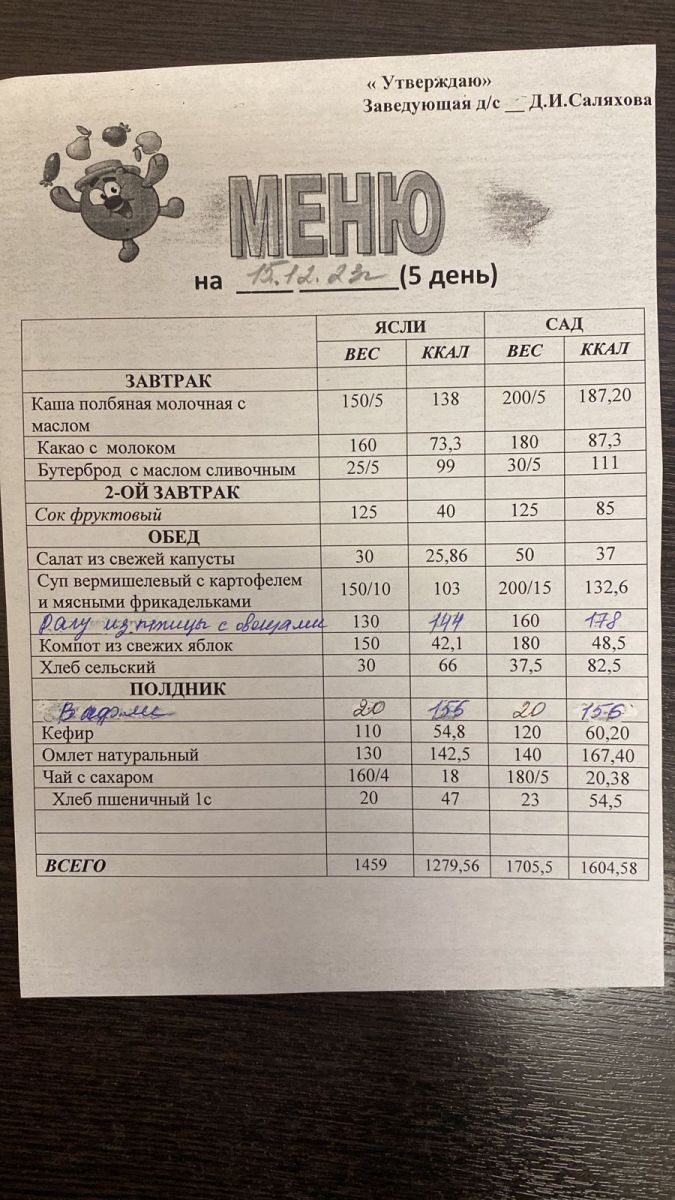 « Утверждаю»
Заведующая д/с __ Д.И.Саляхова
МЕНЮ
на 15.12.23г (5 день)
ЯСЛИ САД
ВЕС ККАЛ ВЕС ККАЛ
ЗАВТРАК
Каша полбяная молочная с маслом 150/5 138 200/5 187,20
Какао с молоком 160 73,3 180 87,3
Бутерброд с маслом сливочным 25/5 99 30/5 111
2-ОЙ ЗАВТРАК
Сок фруктовый 125 40 125 85
ОБЕД
Салат из свежей капусты 30 25,86 50 37
Суп вермишелевый с картофелем и мясными фрикадельками 150/10 103 200/15 132,6
Рагу из птицы с овощами 130 144 160 178
Компот из свежих яблок 150 42,1 180 48,5
Хлеб сельский 30 66 37,5 82,5
ПОЛДНИК
Вафли 20 156 20 156
Кефир 110 54,8 120 60,20
Омлет натуральный 130 142,5 140 167,40
Чай с сахаром 160/4 18 180/5 20,38
Хлеб пшеничный 1с 20 47 23 54,5
ВСЕГО 1459 1279,56 1705,5 1604,58